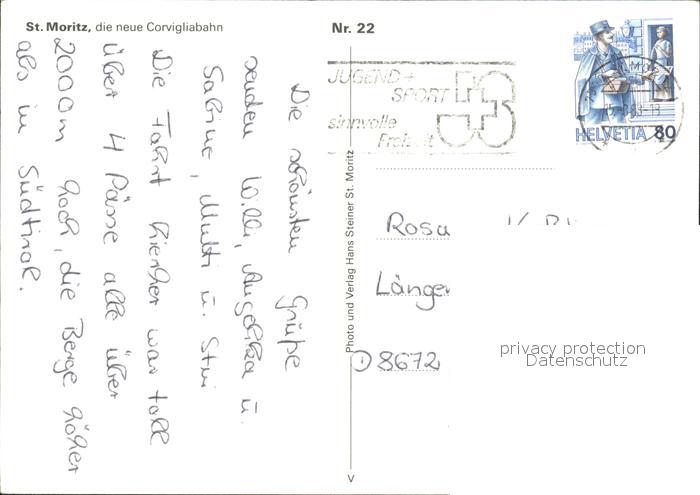 St. Moritz, die neue Corvigliabahn
Nr. 22
Die schönsten Grüße
senden Willi, Angelika u.
Sabine, Mutti u.
Die Fahrt hierher war toll
über 4 Pässe alle über
2000m hoch, die Berge höher
als in Südtirol.
Photo und Verlag Hans Steiner St. Moritz
JUGEND+
SPORT
sinnvolle
Freizeit
HELVETIA 80
Rosa
Länge
8672
privacy protection
Datenschutz
V